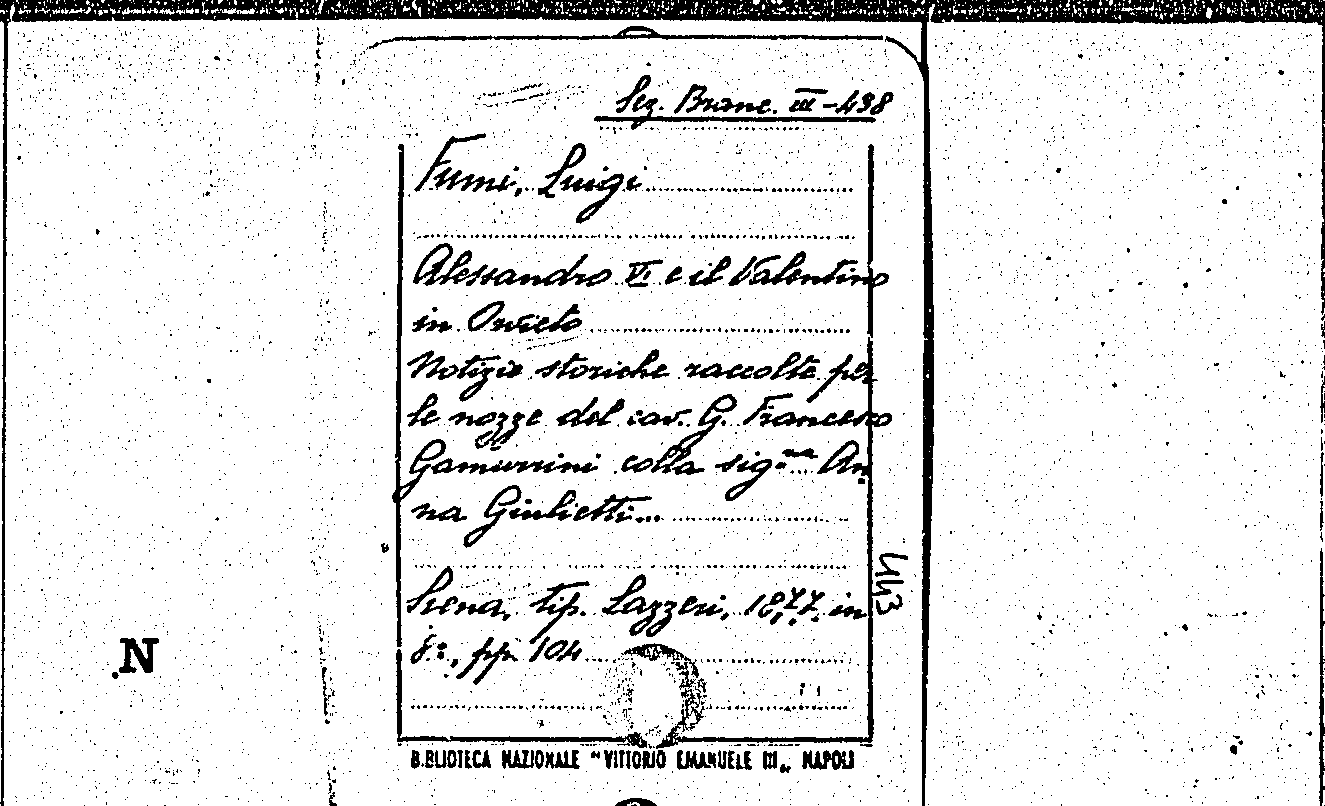 Sez. Branc. III-438
Fumi, Luigi
Alessandro VI e il Valentino
in Orvieto
Notizie storiche raccolte per
le nozze del cav. G. Francesco
Gamurrini colla sig.na An
na Giulietti...
Siena, tip. Lazzeri, 1877. in
8º, pp. 104
443
N
B.BLIOTECA NAZIONALE "VITTORIO EMANUELE III" NAPOLI